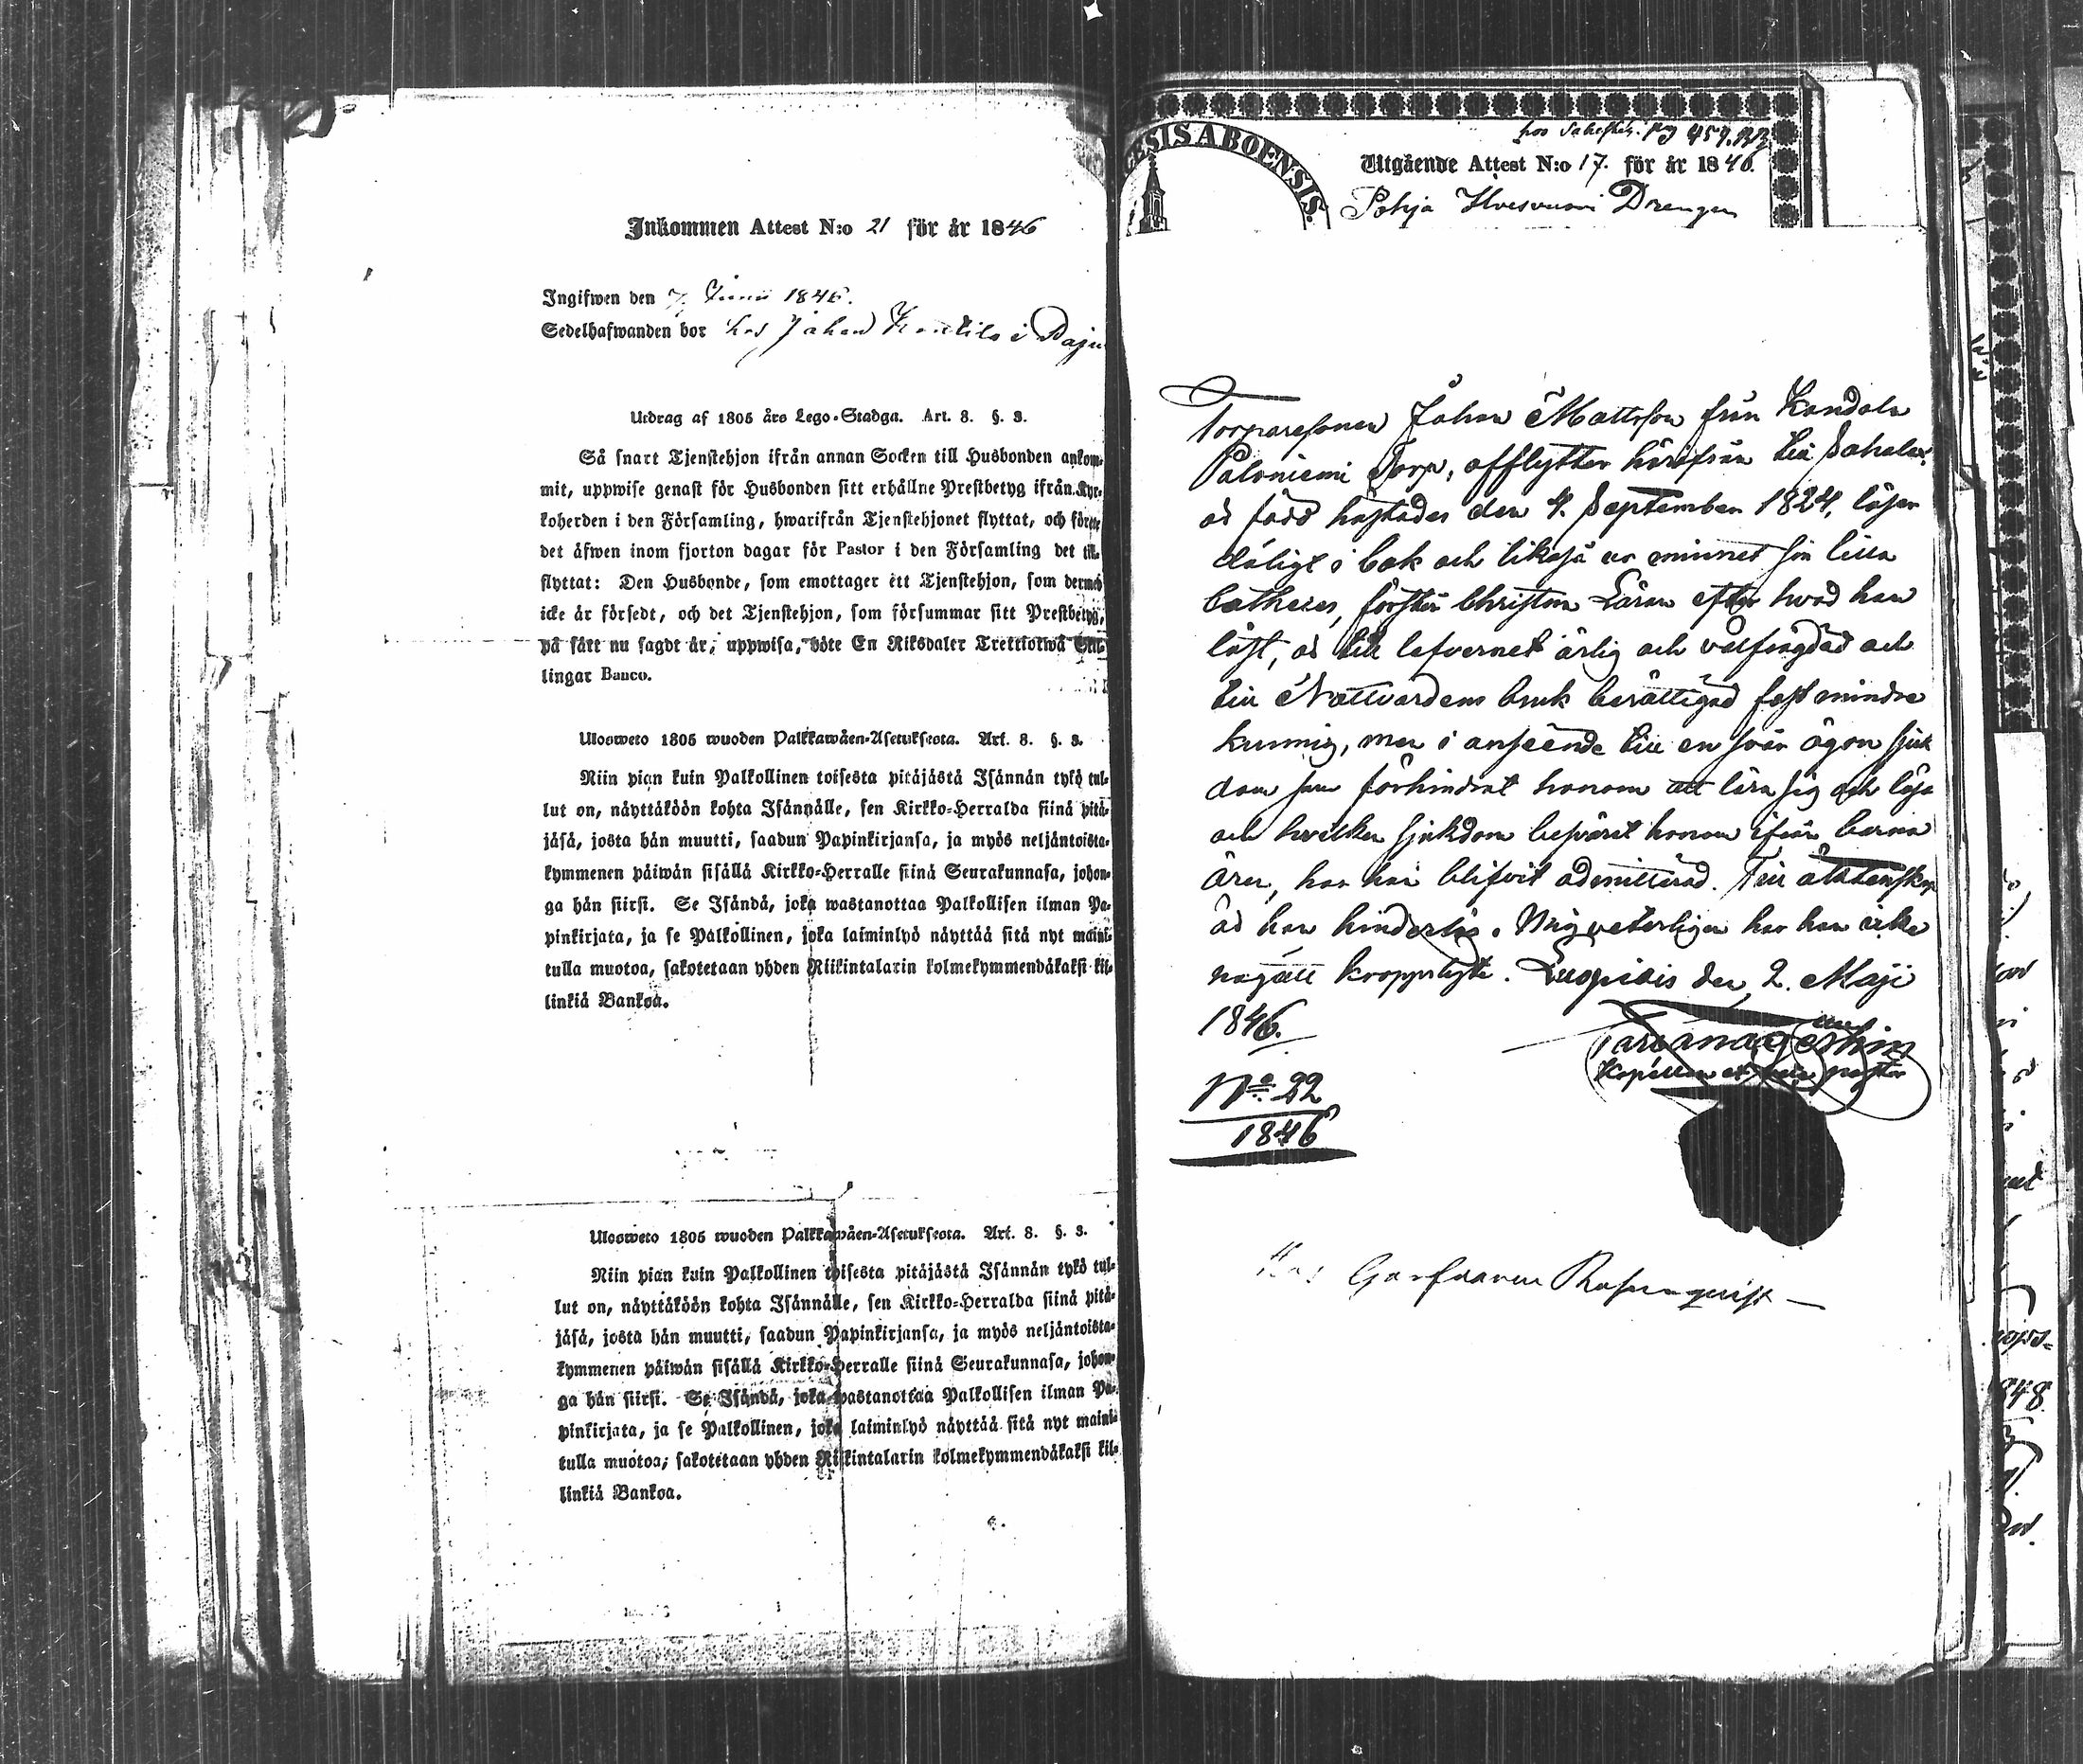 Inkommen Attest N:o 21 för år 1846
Ingifwen den 7. Junii 1846.
Sedelhafwanden bor hos Johan i
Utdrag af 1805 års Lego-Stadga. Art. 8. §. 3.
Så snart Tjenstehjon ifrån annan Socken till Husbonden ankom-
mit, uppwise genast för Husbonden sitt erhållne Prestbetyg ifrån Kyr-
koherden i den Församling, hwarifrån Tjenstehjonet flyttat, och förete
det äfwen inom fjorton dagar för Pastor i den Församling det till-
flyttat: Den Husbonde, som emottager ett Tjenstehjon, som dermed
icke är försedt, och det Tjenstehjon, som försummar sitt Prestbetyg,
på sätt nu sagdt är, uppwisa, böte En Riksdaler Trettiotwå Skil-
lingar Banco.
Ulosweto 1805 wuoden Palkkawäen-Asetuksesta. Art. 8. §. 3.
Niin pian kuin Palkollinen toisesta pitäjästä Isännän tykö tul-
lut on, näyttäköön kohta Isännälle, sen Kirkko-Herralda siinä pitä-
jäsä, josta hän muutti, saadun Papinkirjansa, ja myös neljäntoista-
kymmenen päiwän sisällä Kirkko-Herralle siinä Seurakunnasa, johon-
ga hän siirsi. Se Isändä, joka wastanottaa Palkollisen ilman Pa-
pinkirjata, ja se Palkollinen, joka laiminlyö näyttää sitä nyt maini-
tulla muotoa, sakotetaan yhden Riikintalarin kolmekymmendäkaksi kil-
linkiä Bankoa.
Ulosweto 1805 wuoden Palkkawäen-Asetuksesta. Art. 8. §. 3.
Niin pian kuin Palkollinen toisesta pitäjästä Isännän tykö tul-
lut on, näyttäköön kohta Isännälle, sen Kirkko-Herralda siinä pitä-
jäsä, josta hän muutti, saadun Papinkirjansa, ja myös neljäntoista-
kymmenen päiwän sisällä Kirkko-Herralle siinä Seurakunnasa, johon-
ga hän siirsi. Se Isändä, joka wastanottaa Palkollisen ilman Pa-
pinkirjata, ja se Palkollinen, joka laiminlyö näyttää sitä nyt maini-
tulla muotoa, sakotetaan yhden Riikintalarin kolmekymmendäkaksi kil-
linkiä Bankoa.
ESIS ABOENSIS.
hos pag 459.
Utgående Attest N:o 17. för år 1846.
Pohja Drengen
Torparesonen Johan Mattsson från Kandola
Paloniemi Torp, afflytter härifrån till Sahalax.
är född högstades den 4. September 1824, läser
dåligt i bok och likaså ur minnet sin lilla
Catheces, förstår Christna Läran efter hvad han
läst, är till lefvernet ärlig och välfrägdad och
till Nattvardens bruk berättigad fast mindre
kunnig, men i anseende till en svår ögon sjuk
dom som förhindrat honom att lära sig och läsa
och hvilken sjukdom besvärat honom ifrån barna
åren, har han blifvit admitterad. Till äktenskap
är han hinderlös. Mig veterligen har han icke
något kroppslyte. Luopiois den 2. Maji
1846.
Kapellan pastor
No 22
1846
Hos Garfvaren Rosenquist